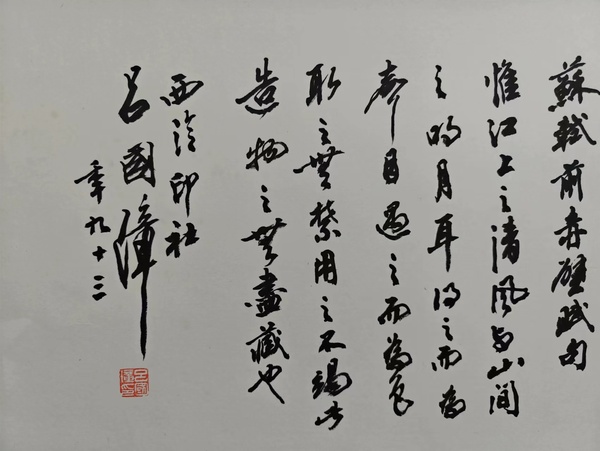 蘇軾前赤壁賦句
惟江上之清風与山間
之明月耳得之而為
声目遇之而為色
取之無禁用之不竭此
造物之無盡藏也
西泠印社
呂國璋
年九十三